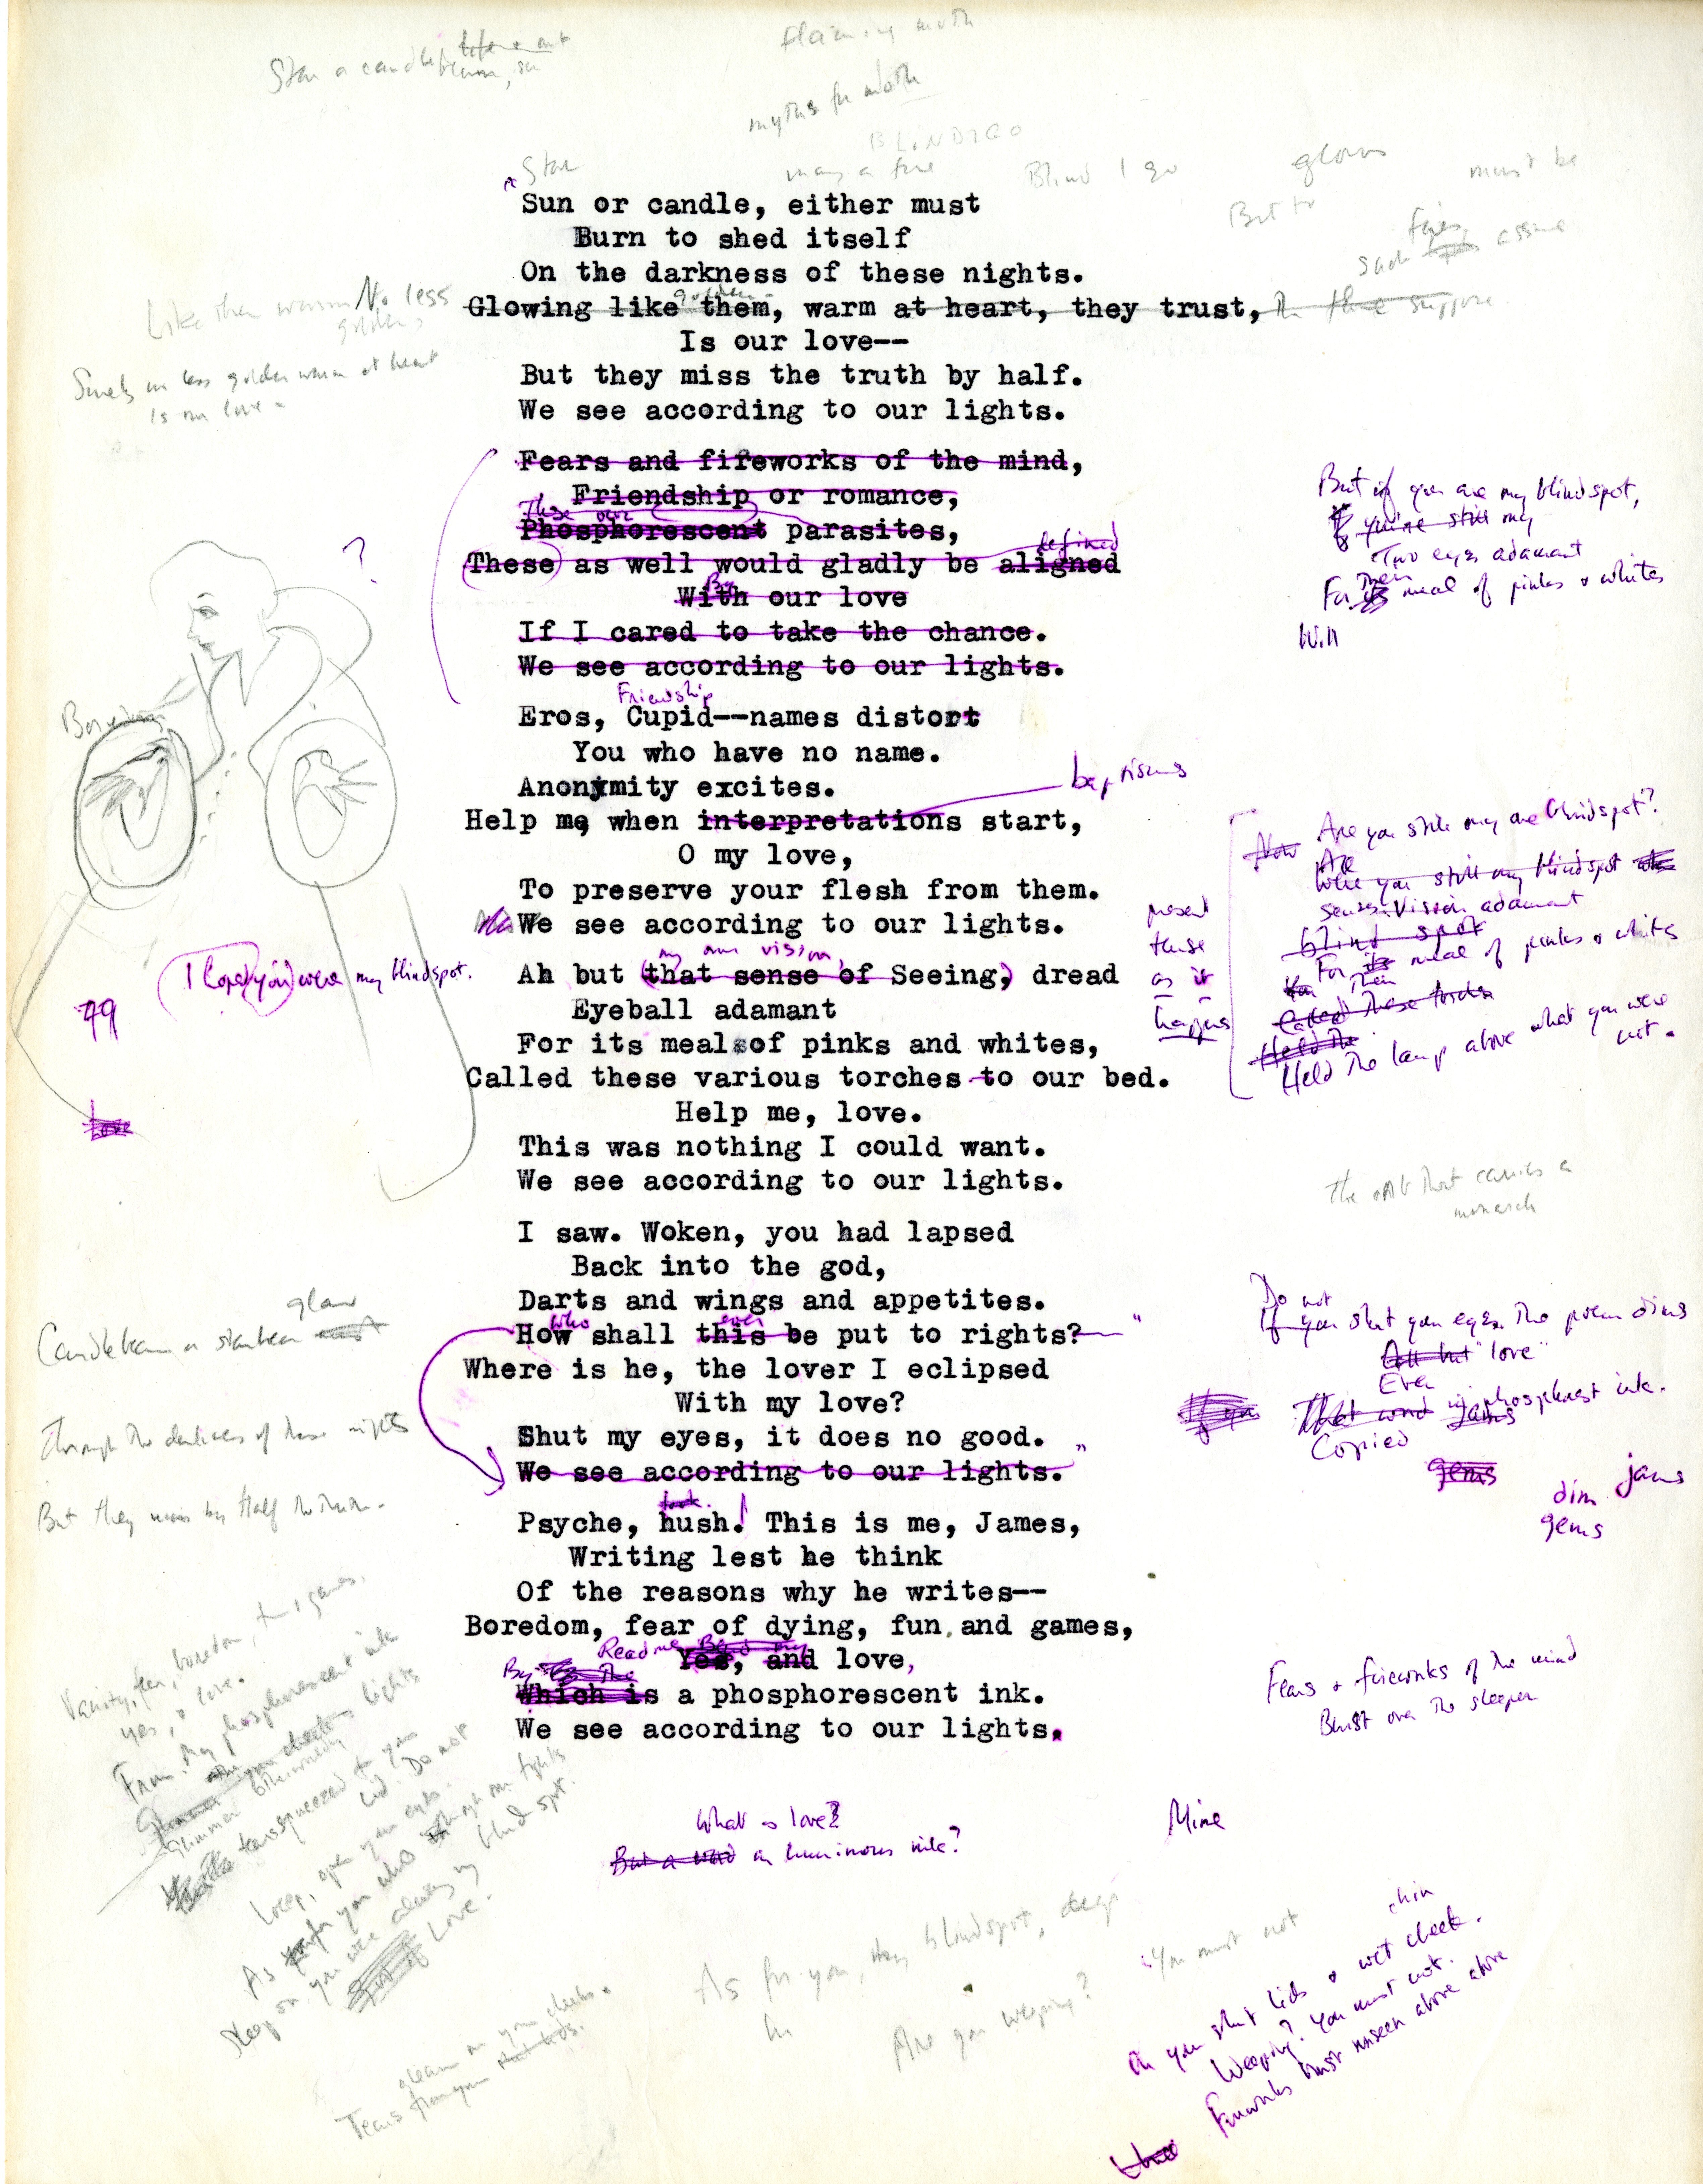 Star a candle
flaming moth
myths for moth
BLINDIGO
Star
many a fire
Blind I go
glows
must be
But to
fires
such assume
Sun or candle, either must
Burn to shed itself
On the darkness of these nights.
Like them warm No less
golden
golden
Glowing like them, warm at heart, they trust,
suppose
Is our love--
Surely no less golden warm at heart
Is our love -
But they miss the truth by half.
We see according to our lights.
Fears and fireworks of the mind,
Friendship or romance,
These our
Phosphorescent parasites,
defined
These as well would gladly be aligned
By
With our love
If I cared to take the chance.
We see according to our lights.
But if you are my blindspot,
If you're still my
Two eyes adamant
Their
For its meal of pinks & whites
Will
?
Friendship
Eros, Cupid--names distort
You who have no name.
Anonymity excites.
baptisms
Help me, when interpretations start,
O my love,
To preserve your flesh from them.
We see according to our lights.
my own vision,
Ah but (that sense of Seeing,) dread
Eyeball adamant
For its meal of pinks and whites,
Called these various torches to our bed.
Help me, love.
This was nothing I could want.
We see according to our lights.
I hoped you were my blindspot.
Love
present
tense
as it
happens
Now Are you still my one blindspot?
Are
Were you still my blindspot
senses Vision adamant
blind spot
For its meal of pinks & whites
Their
Called these torches
Held the
Held the lamp above what you were
not.
The that carries a
monarch
I saw. Woken, you had lapsed
Back into the god,
Darts and wings and appetites.
who ever
How shall this be put to rights?
Where is he, the lover I eclipsed
With my love?
Shut my eyes, it does no good.
We see according to our lights.
glow
Candlebeam or starbeam
Through the darkness of these nights
But they miss by half the truth.
Do not
If you shut your eyes. The poem dims
All but "love"
Ever
If you That word in phosphorest ink.
jams
Copied
gems
jams
dim
gems
look
Psyche, hush! This is me, James,
Writing lest he think
Of the reasons why he writes--
Boredom, fear of dying, fun and games,
Read me Bend my
Yes, and love,
By the
Which is a phosphorescent ink.
We see according to our lights.
Vanity, fear, boredom, fun & games,
yes, & love.
From my phosphorescent ink
lights
Glimmer
tears squeezed
lid. Do not
weep, open your eyes.
As for you who
sleep on you were always my blind spot.
Love.
Fears & fireworks of the mind
Burst over the sleeper
What is love?
But a word in luminous ink?
Mine
As for you, my blindspot, deep
in
Are you weeping?
You must not
chin
On your shut lids & wet cheek.
Weeping? You must not.
Fireworks burst unseen above above
gleam on your cheeks.
Tears from your shut lids.